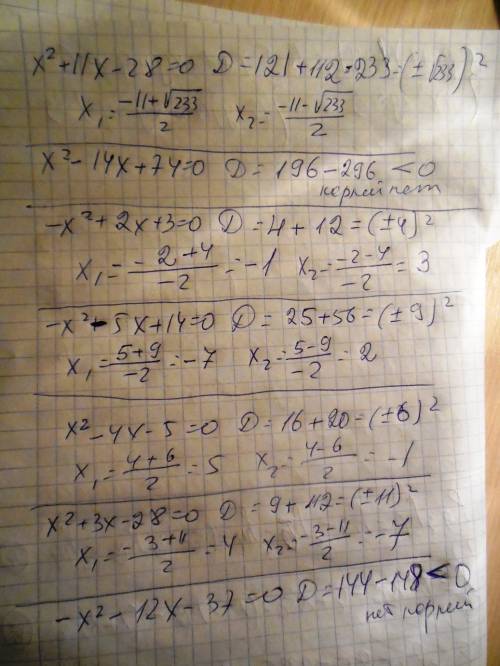 x²+11x-28=0 D=121+112=233=(±√233)²
x₁=(-11+√233)/2 x₂=(-11-√233)/2
x²-14x+74=0 D=196-296<0
корней нет
-x²+2x+3=0 D=4+12=(±4)²
x₁=(-2+4)/-2=-1 x₂=(-2-4)/-2=3
-x²-5x+14=0 D=25+56=(±9)²
x₁=(5+9)/-2=-7 x₂=(5-9)/-2=2
x²-4x-5=0 D=16+20=(±6)²
x₁=(4+6)/2=5 x₂=(4-6)/2=-1
x²+3x-28=0 D=9+112=(±11)²
x₁=(-3+11)/2=4 x₂=(-3-11)/2=-7
-x²-12x-37=0 D=144-148<0
нет корней